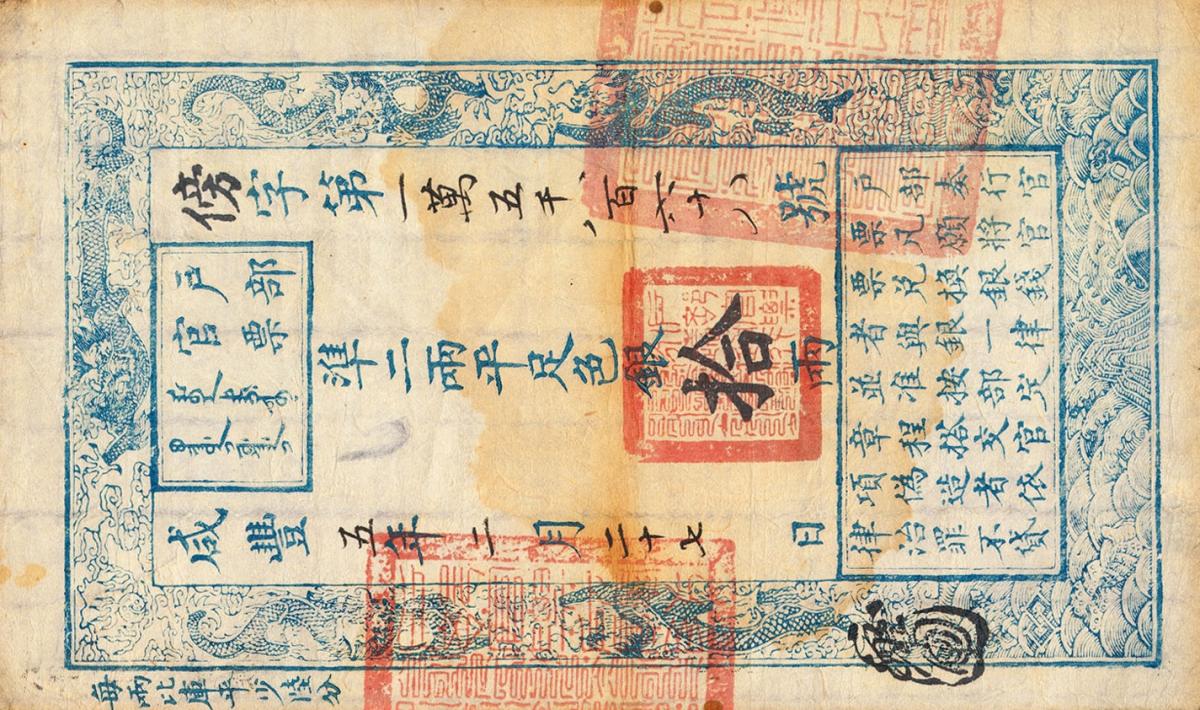 傍字第一萬五千、百六十、號
戶部
官票
準二兩平足色銀拾兩
咸豐五年二月二十七日
戶部奏行官
票凡願將官
票兌換銀錢
者與銀一律
並准按部定
章程搭交官
項偽造者依
律治罪不貸
每兩比庫平少陸分